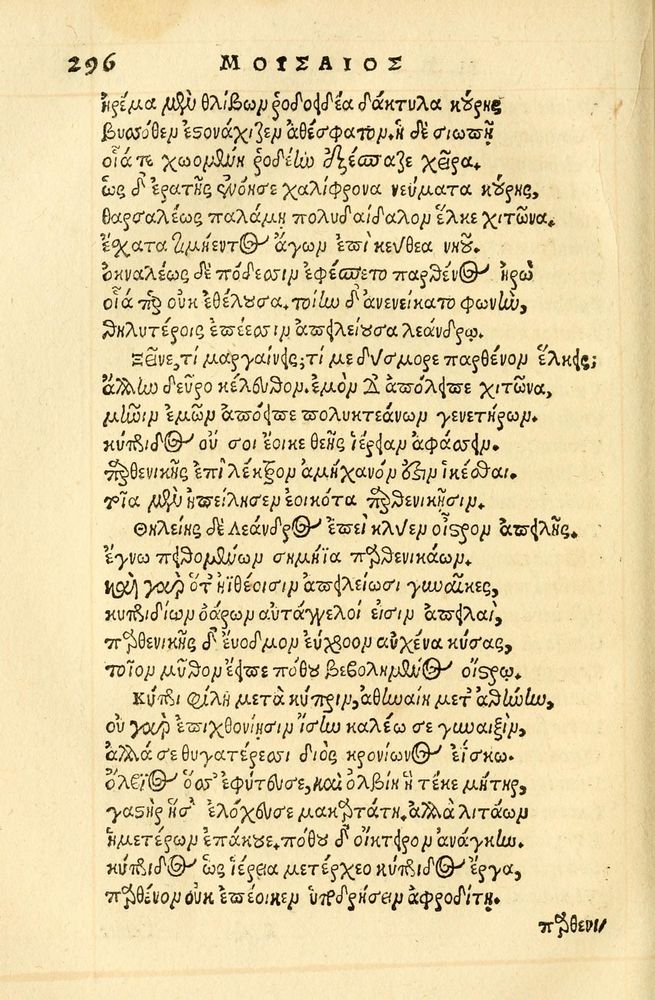 296 ΜΟΥΣΑΙΟΣ
ἠρέμα μὲν θλίβων ῥοδοειδέα δάκτυλα κούρης
βυσσόθεν ἐστονάχιζεν ἀθέσφατον. ἡ δὲ σιωπῇ
οἷά τε χωομένη ῥοδέην ἐξέσπασε χεῖρα.
ὡς δ' ἐρατῆς ἐνόησε χαλίφρονα νεύματα κούρης,
θαρσαλέως παλάμῃ πολυδαίδαλον ἕλκε χιτῶνα.
ἔσχατα τιμήεντος ἄγων ἐπὶ κεύθεα νηοῦ.
ὀκναλέως δὲ πόδεσσιν ἐφέσπετο παρθένος ἡρὼ
οἷά περ οὐκ ἐθέλουσα. τοίην δ' ἀνενείκατο φωνὴν,
θηλυτέροις ἐπέεσσιν ἀπειλείουσα λεάνδρῳ.
Ξεῖνε, τί μαργαίνεις; τί με δύσμορε παρθένον ἕλκεις;
ἄλλην δεῦρο κέλευθον. ἐμὸν δ' ἀπόλειπε χιτῶνα,
μῆνιν ἐμῶν ἀπόειπε πολυκτεάνων γενετήρων.
κύπριδος οὔ σοι ἔοικε θεῆς ἱέρειαν ἀφάσσειν.
παρθενικῆς ἐπὶ λέκτρον ἀμήχανόν ἐστιν ἱκέσθαι.
τοῖα μὲν ἠπείλησεν ἐοικότα παρθενικῇσιν.
Θηλείης δὲ Λεάνδρος ἐπεὶ κλύεν οἶστρον ἀπειλῆς.
ἔγνω πειθομένων σημήϊα παρθενικάων.
καὶ γὰρ ὅτ' ἠϊθέοισιν ἀπειλείωσι γυναῖκες,
κυπριδίων ὀάρων αὐτάγγελοί εἰσιν ἀπειλαὶ,
παρθενικῆς δ' ἔνοδμον ἐύχροον αὐχένα κύσας,
τοῖον μῦθον ἔειπε πόθου βεβολημένος οἴστρῳ.
Κύπρι φίλη μετὰ κύπριν, ἀθηναίη μετ' ἀθήνην,
οὐ γὰρ ἐπιχθονίῃσιν ἴσην καλέω σε γυναιξὶν,
ἀλλά σε θυγατέρεσσι διὸς κρονίωνος ἐΐσκω.
ὄλβιος ὅς σ' ἐφύτευσε, καὶ ὀλβίη ἣ τέκε μήτηρ,
γαστὴρ ἥ σ' ἐλόχευσε μακαρτάτη. ἀλλὰ λιτάων
ἡμετέρων ἐπάκουε. πόθου δ' οἴκτειρον ἀνάγκην.
κύπριδος ὡς ἱέρεια μετέρχεο κύπριδος ἔργα,
παρθένον οὐκ ἐπέοικεν ὑποδρήσσειν ἀφροδίτῃ.
παρθενι-